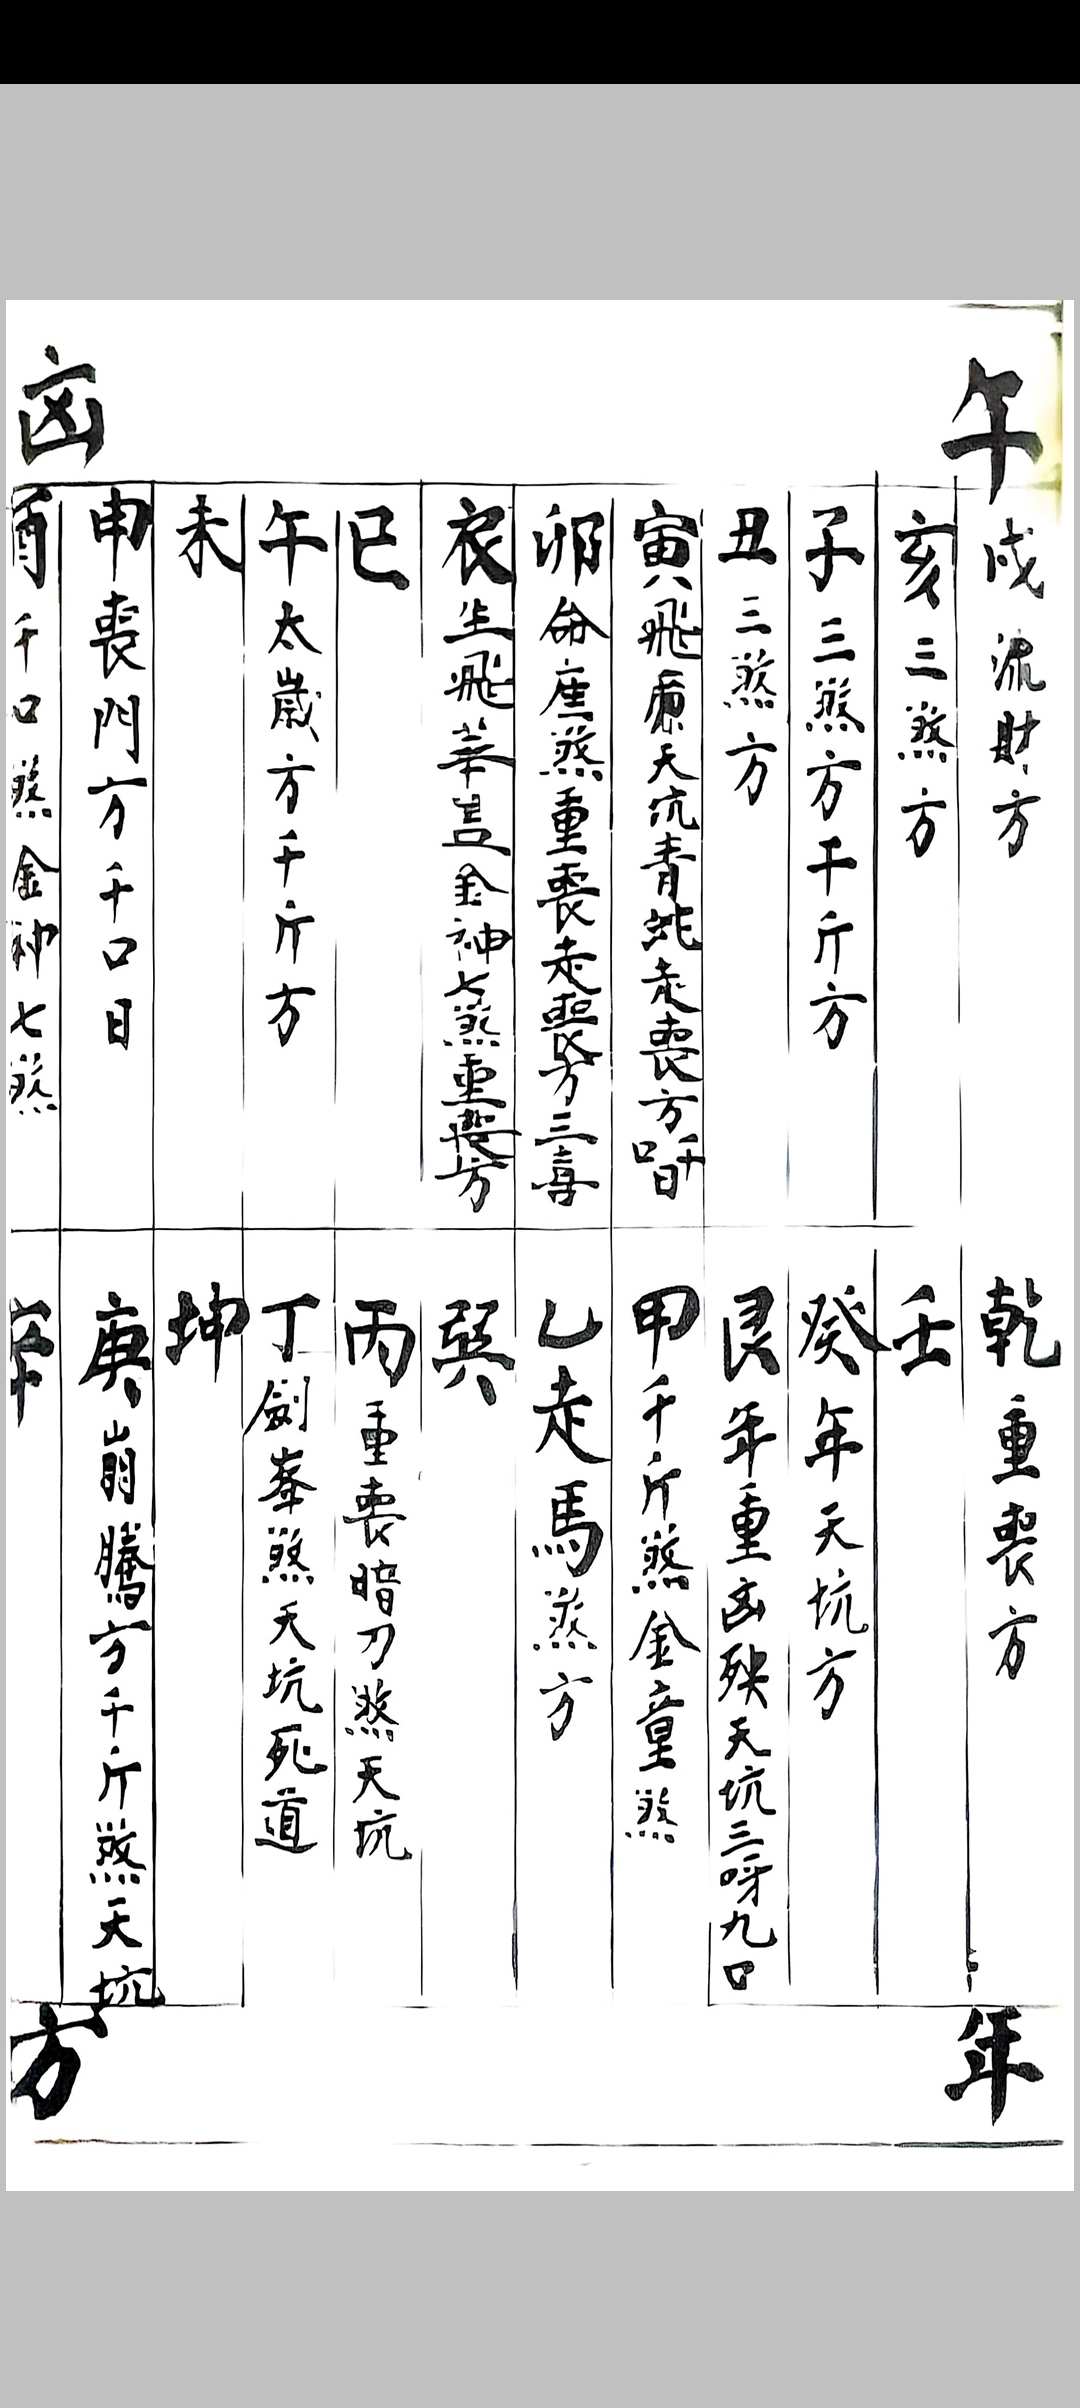 午年
戌流財方
亥三煞方
子三煞方千斤方
丑三煞方
寅飛廉天坑青蛇走喪方千口日
卯命座煞重喪走喪方三喜
辰生飛華蓋金神七煞重喪方
巳
午太歲方千斤方
未
申喪門方千口日
酉千口煞金神七煞
乾重喪方
壬
癸年天坑方
艮年重凶殃天坑三呀九口
甲千斤煞金童煞
乙走馬煞方
巽
丙重喪暗刀煞天坑
丁劍峯煞天坑死道
坤
庚崩騰方千斤煞天坑
辛
凶方